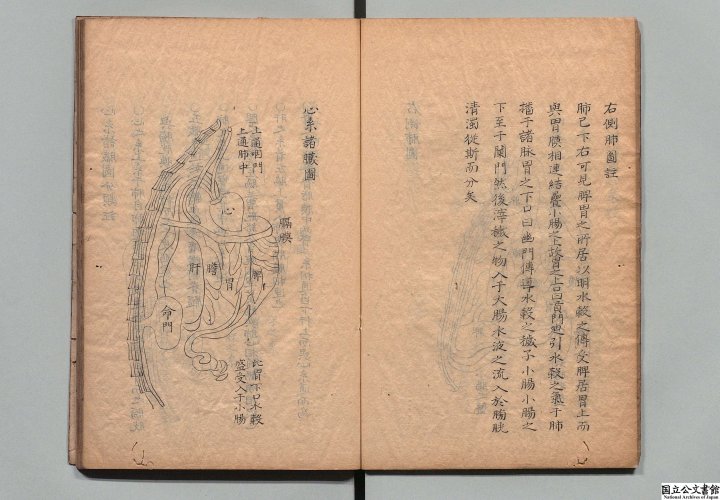 右側肺圖註
肺已下右可見脾胃之所居以明水穀之傳受脾居胃上而
與胃膜相連結疊小腸之上故胃之上口曰賁門迎引水穀之氣于肺
播于諸脉胃之下口曰幽門傳導水穀之穢于小腸小腸之
下至于闌門然後滓穢之物入于大腸水液之流入於膀胱
清濁從斯而分矣
心系諸臟圖
上通咽門
上通肺中
心
膈膜
肝
膽
胃
脾
命門
此胃下口水穀
盛受入于小腸
国立公文書館
National Archives of Japan